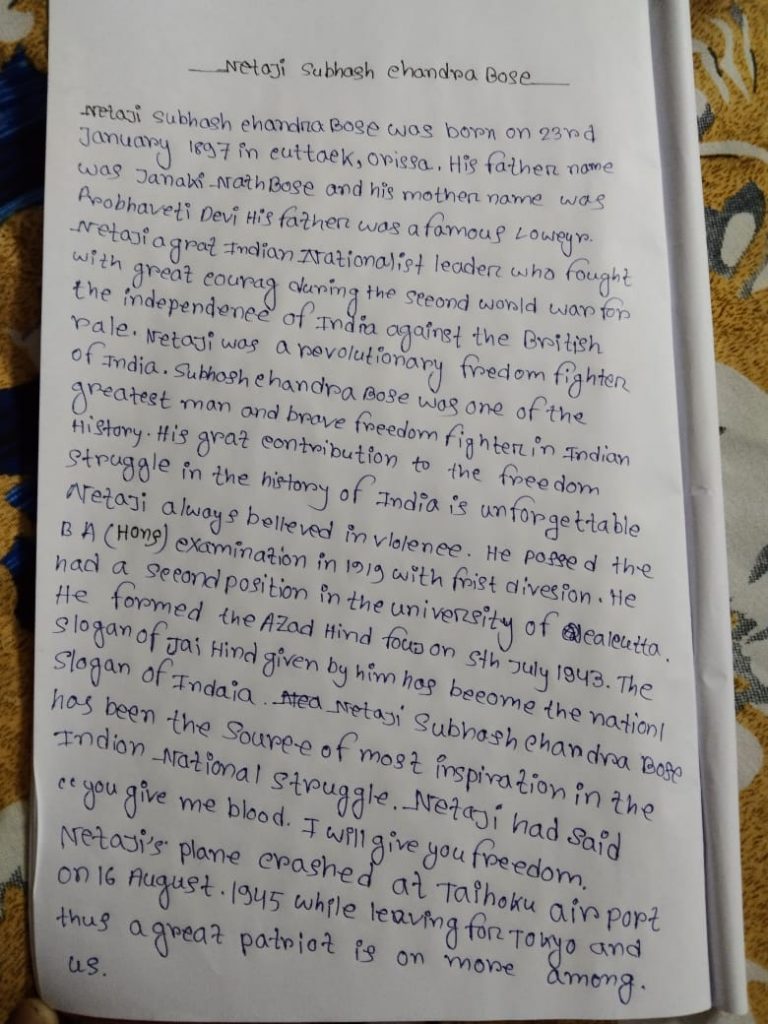 Netaji Subhash Chandra Bose
Netaji Subhash Chandra Bose was born on 23rd
January 1897 in Cuttack, Orissa. His father name
was Janaki Nath Bose and his mother name was
Probhaveti Devi His father was a famous Loweyr.
Netaji a grat Indian Nationalist leader who fought
with great courag during the second world war for
the independence of India against the British
rale. Netaji was a revolutionary fredom fighter
of India. Subhash Chandra Bose was one of the
greatest man and brave freedom fighter in Indian
History. His grat contribution to the freedom
struggle in the history of India is unforgettable
Netaji always believed in vlolence. He possed the
B A (Hons) examination in 1919 with frist divesion. He
had a second position in the university of calcutta.
He formed the Azad Hind fouz on 5th July 1943. The
slogan of Jai Hind given by him has become the nationl
slogan of Indaia. Netaji Subhash Chandra Bose
has been the source of most inspiration in the
Indian National struggle. Netaji had said
"you give me blood. I will give you freedom.
Netaji's plane crashed at Taihoku air port
on 16 August. 1945 while leaving for Tokyo and
thus a great patriot is on more among.
us.